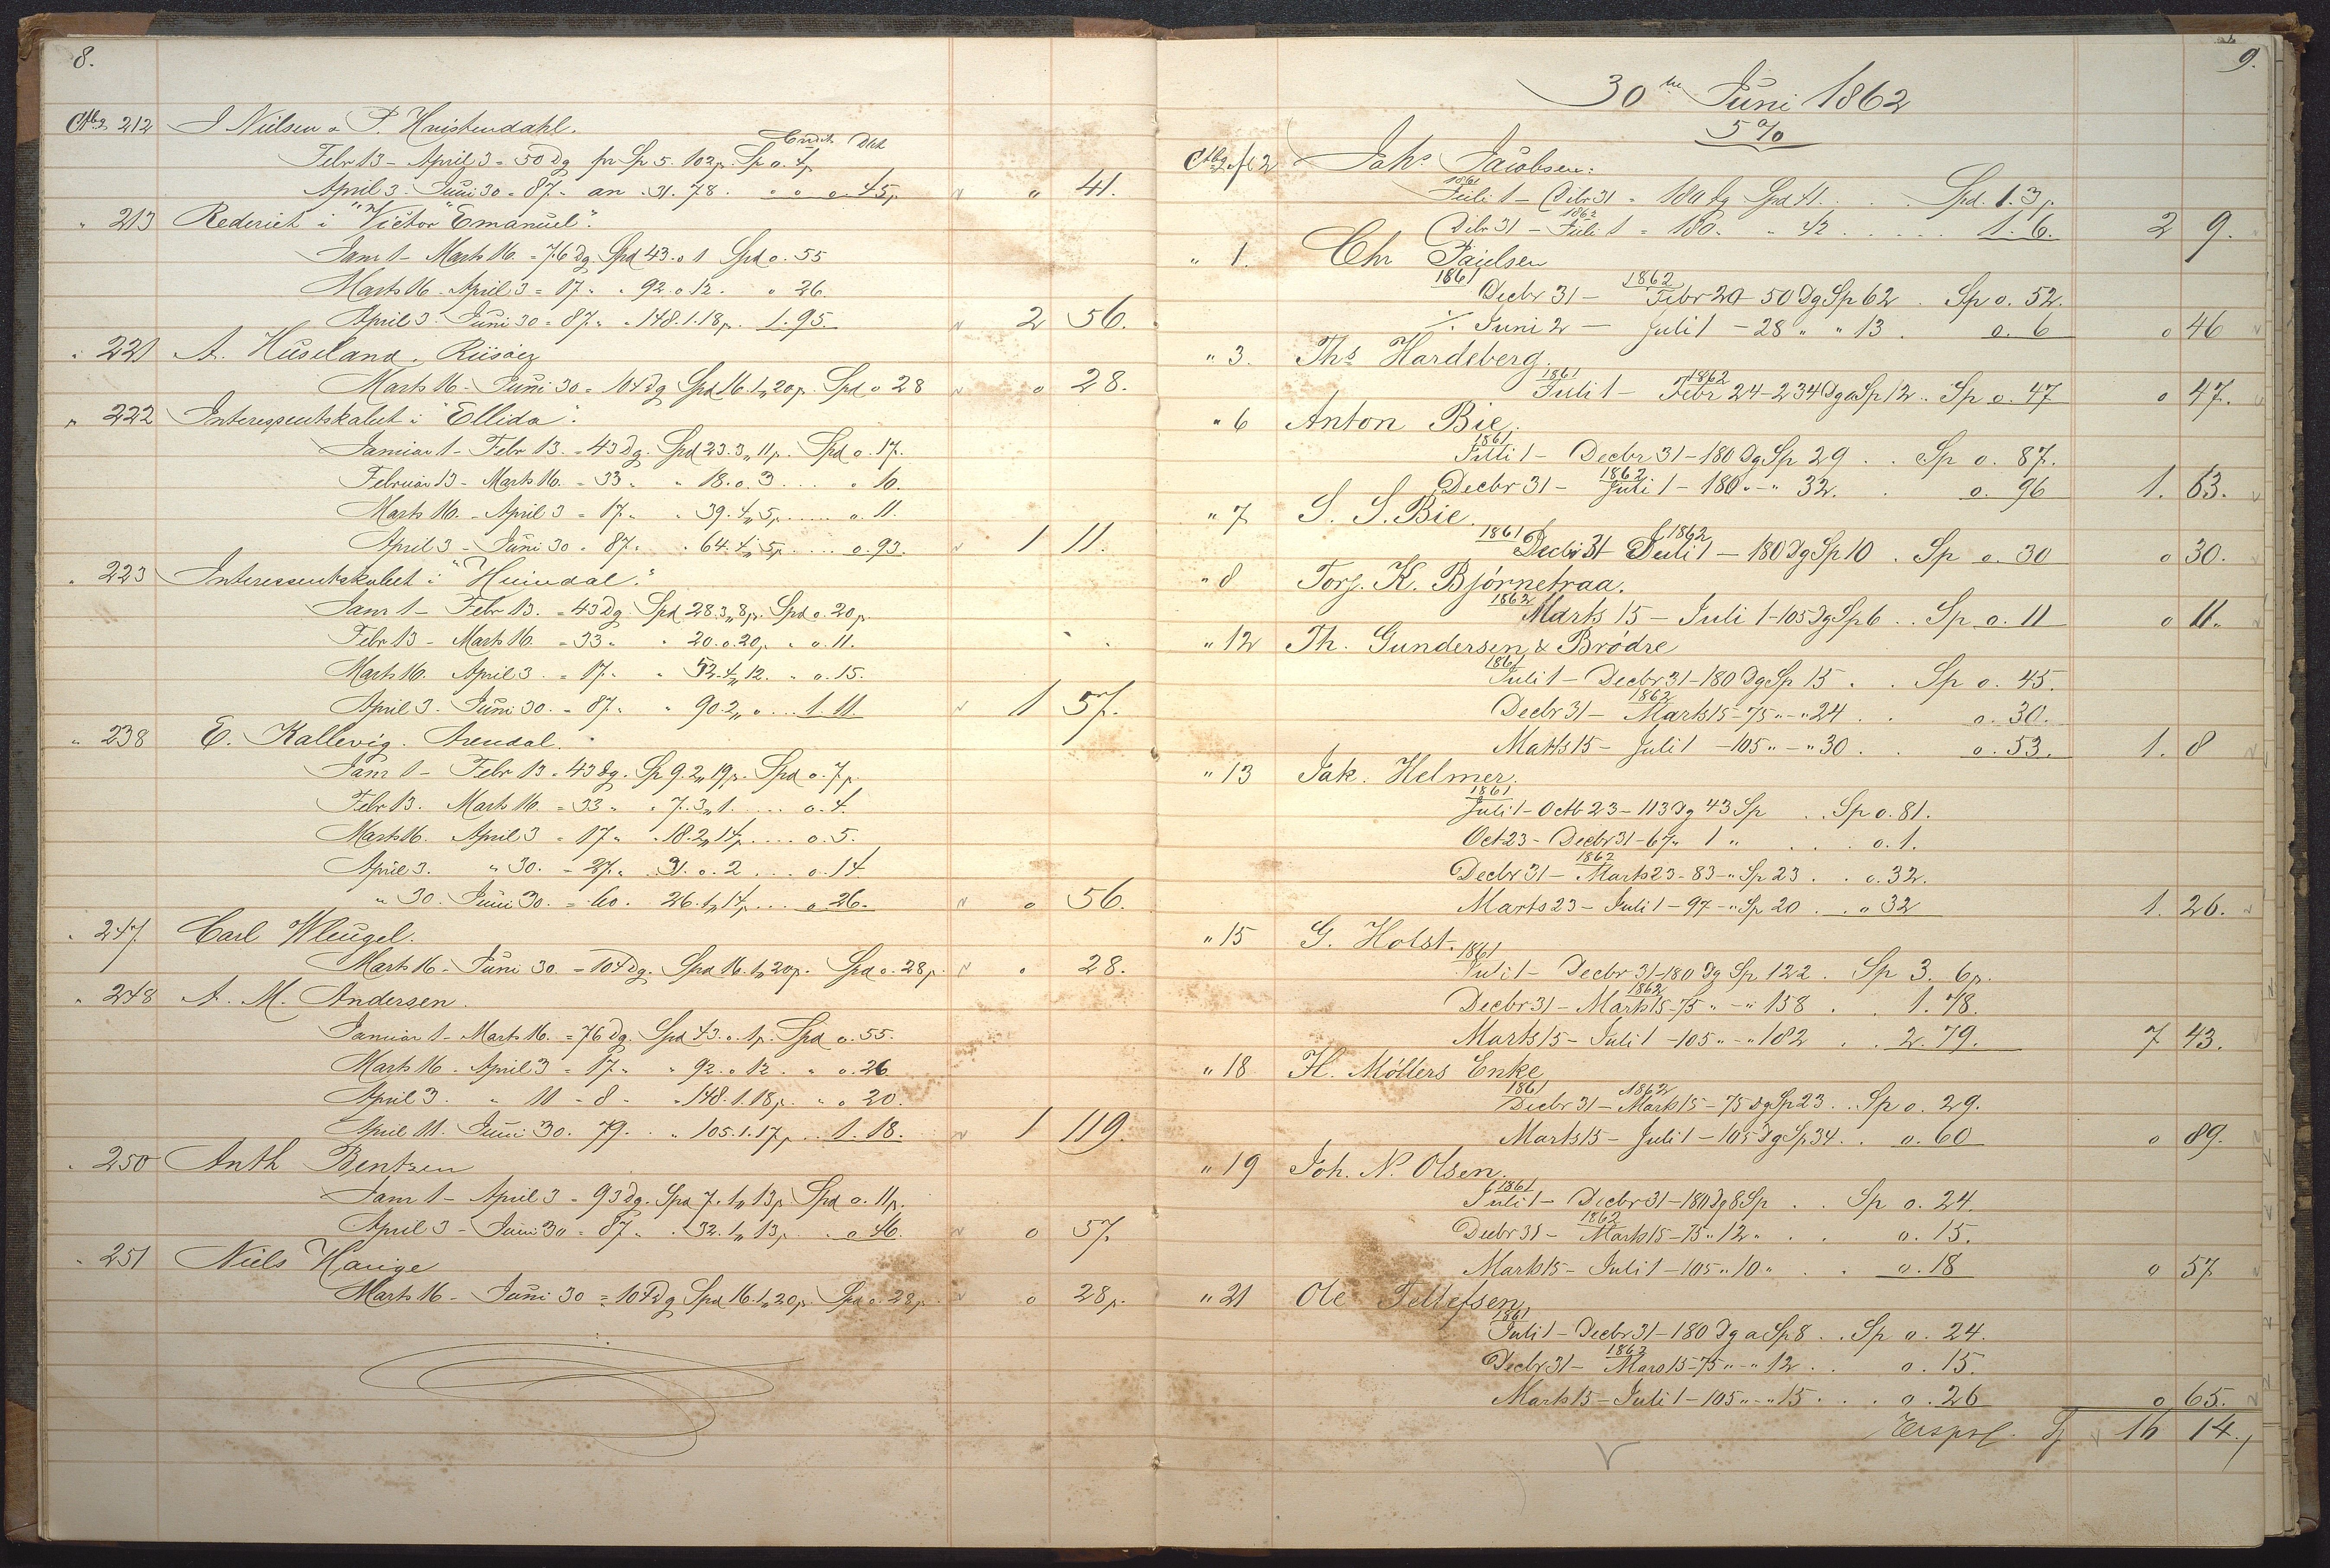 8.
Ctbg 212 J Nielsen o P. Hvistendahl.
Credit Debt
Febr 13 - April 3 = 50 Dg pr Sp 5. 102 p. Sp o. 4 p
April 3 - Juni 30 = 87 " an . 31. 78. " o o. 45 p " " 41.
" 213 Rederiet i "Victor Emanuel".
Janr 1 - Marts 16. = 76 Dg. Spd 43. o 1 Spd o. 55
Marts 16 - April 3 = 17 " " 92. o 12. " 26
April 3. Juni 30 = 87 " " 148. 1. 18 p. 1. 95. 2 56.
" 221 A. Huseland. Riisöer
Marts 16 - Juni 30 = 104 Dg Spd 16. 1 " 20 p. Spd o 28 o 28.
" 222 Interessentskabet i "Ellida".
Januar 1 - Febr 13. = 43 Dg. Spd 23. 3 " 11 p. Spd o. 17.
Februar 13 - Marts 16. = 33 " " 18. o. 3 .... " 10.
Marts 16. - April 3 = 17 " " 39. 4 " 5 p ..... o. 11.
April 3 - Juni 30 = 87 " " 64. 4 " 5 p .... o. 93. 1 11.
" 223 Interessentskabet i "Heimdal".
Janr 1 - Febr 13. = 43 Dg. Spd 28. 3 " 8 p. Spd o. 20 p
Febr 13 - Marts 16 = 33 " " 20. o. 20 p " o. 11.
Marts 16. April 3. = 17 " " 52. 4 " 12. " o. 15.
April 3. Juni 30. = 87 " " 90. 2 " o .... 1. 11. 1 57.
" 238 E. Kallevig. Arendal.
Janr 1 - Febr 13 = 43 Dg. Sp 9. 2 " 19 p. Spd o. 7 p.
Febr 13. Marts 16 = 33 " " 7. 3 " 1. .... o. 4.
Marts 16. April 3 = 17 " " 18. 2 " 14 p .... o. 5.
April 3. " 30. = 27 " " 31. o. 2 .... o. 14
" 30. Juni 30. = 60. 26. 1 " 14 p .... o 26. o 56.
" 247 Carl Wleugel.
Marts 16 - Juni 30 = 104 Dg. Spd 16. 1 " 20 p. Spd o. 28 p. o 28.
" 248 A. M. Andersen.
Januar 1 - Marts 16. = 76 Dg. Spd 43. o. 1 p. Spd o. 55.
Marts 16. April 3 = 17 " " 92. o 12. " o. 26
April 3. " 11 = 8 " " 148. 1. 18 p. " o 20.
April 11. Juni 30. 79. " 105. 1. 17 p ... 1. 18. 1 119.
" 250 Anth Bentzen
Janr 1 - April 3 = 93 Dg. Spd 7. 1 " 13 p Spd o. 11 p.
April 3 - Juni 30 = 87 " " 32. 1 " 13 p . o 46. o 57.
" 251 Niels Hauge
Marts 16 - Juni 30 = 104 Dg Spd 16. 1 " 20 p. Spd o. 28 p. o 28 p.
9.
30te Juni 1862
5%
Ctbg fl 2 Johs Jacobsen.
1861
Juli 1 - Dcbr 31 = 180 dg Spd 41. . . . Spd. 1. 3 p.
1862
Dcbr 31 - Juli 1 = 180. " 42 . . . . 1. 6. 2 9.
" 1. Chr Paulsen
1861 1862
Decbr 31 - Febr 20 - 50 Dg Sp 62 . Sp o. 52.
./. Juni 2 - Juli 1 - 28 " " 13 . o. 6 o 46
" 3. Ths Hardeberg.
1861 1862
Juli 1 - Febr 24 - 234 Dg a Sp 12 . . Sp o. 47 o 47.
" 6 Anton Bie.
1861
Juli 1 - Decbr 31 - 180 Dg Sp 29 . . Sp o. 87.
1862
Decbr 31 - Juli 1 - 180 " - " 32. . o. 96 1. 63.
" 7 S. S. Bie.
1861 1862
Decbr 31 Juli 1 - 180 Dg Sp 10 . Sp o. 30 o 30.
" 8 Torj. K. Bjørnetraa.
1862
Marts 15 - Juli 1 - 105 Dg Sp 6 . . Sp o. 11 o 11.
" 12 Th. Gundersen & Brödre
1861
Juli 1 - Decbr 31 - 180 Dg Sp 15 . . Sp o. 45.
1862
Decbr 31 - Marts 15 - 75 " - " 24 . . o. 30.
Marts 15 - Juli 1 - 105 " - " 30 . . o. 53. 1. 8
" 13 Jak. Helmer.
1861
Juli 1 - Octb 23 - 113 Dg 43 Sp . . Sp o. 81.
Oct 23 - Decbr 31 - 67 " 1 " . . . o. 1.
1862
Decbr 31 - Marts 23 - 83 - " Sp 23 . . o. 32.
Marts 23 - Juli 1 - 97 - " Sp 20 . . o 32 1. 26.
" 15 G. Holst.
1861
Juli 1 - Decbr 31 - 180 Dg Sp 122 . Sp 3. 6 p.
1862
Decbr 31 - Marts 15 - 75 " - " 158 . . 1. 78.
Marts 15 - Juli 1 - 105 " - " 182 . . 2. 79. 7 43.
" 18 H. Möllers Enke
1861 1862
Decbr 31 - Marts 15 - 75 Dg Sp 23 . . Sp o. 29.
Marts 15 - Juli 1 - 105 Dg Sp 34 . . o. 60 o 89.
" 19 Joh. N. Olsen.
1861
Juli 1 - Decbr 31 - 180 Dg 8 Sp . . Sp o. 24.
1862
Decbr 31 - Marts 15 - 75 " 12 " . . o. 15.
Marts 15 - Juli 1 - 105 " 10 " . . o. 18 o 57
" 21 Ole Tellefsen
1861
Juli 1 - Decbr 31 - 180 Dg a Sp 8 . . Sp o. 24.
1862
Decbr 31 - Mars 15 - 75 " - " 12 . . o. 15.
Marts 15 - Juli 1 - 105 " - " 15 . . . o. 26 o 65.
Sp 16 14.